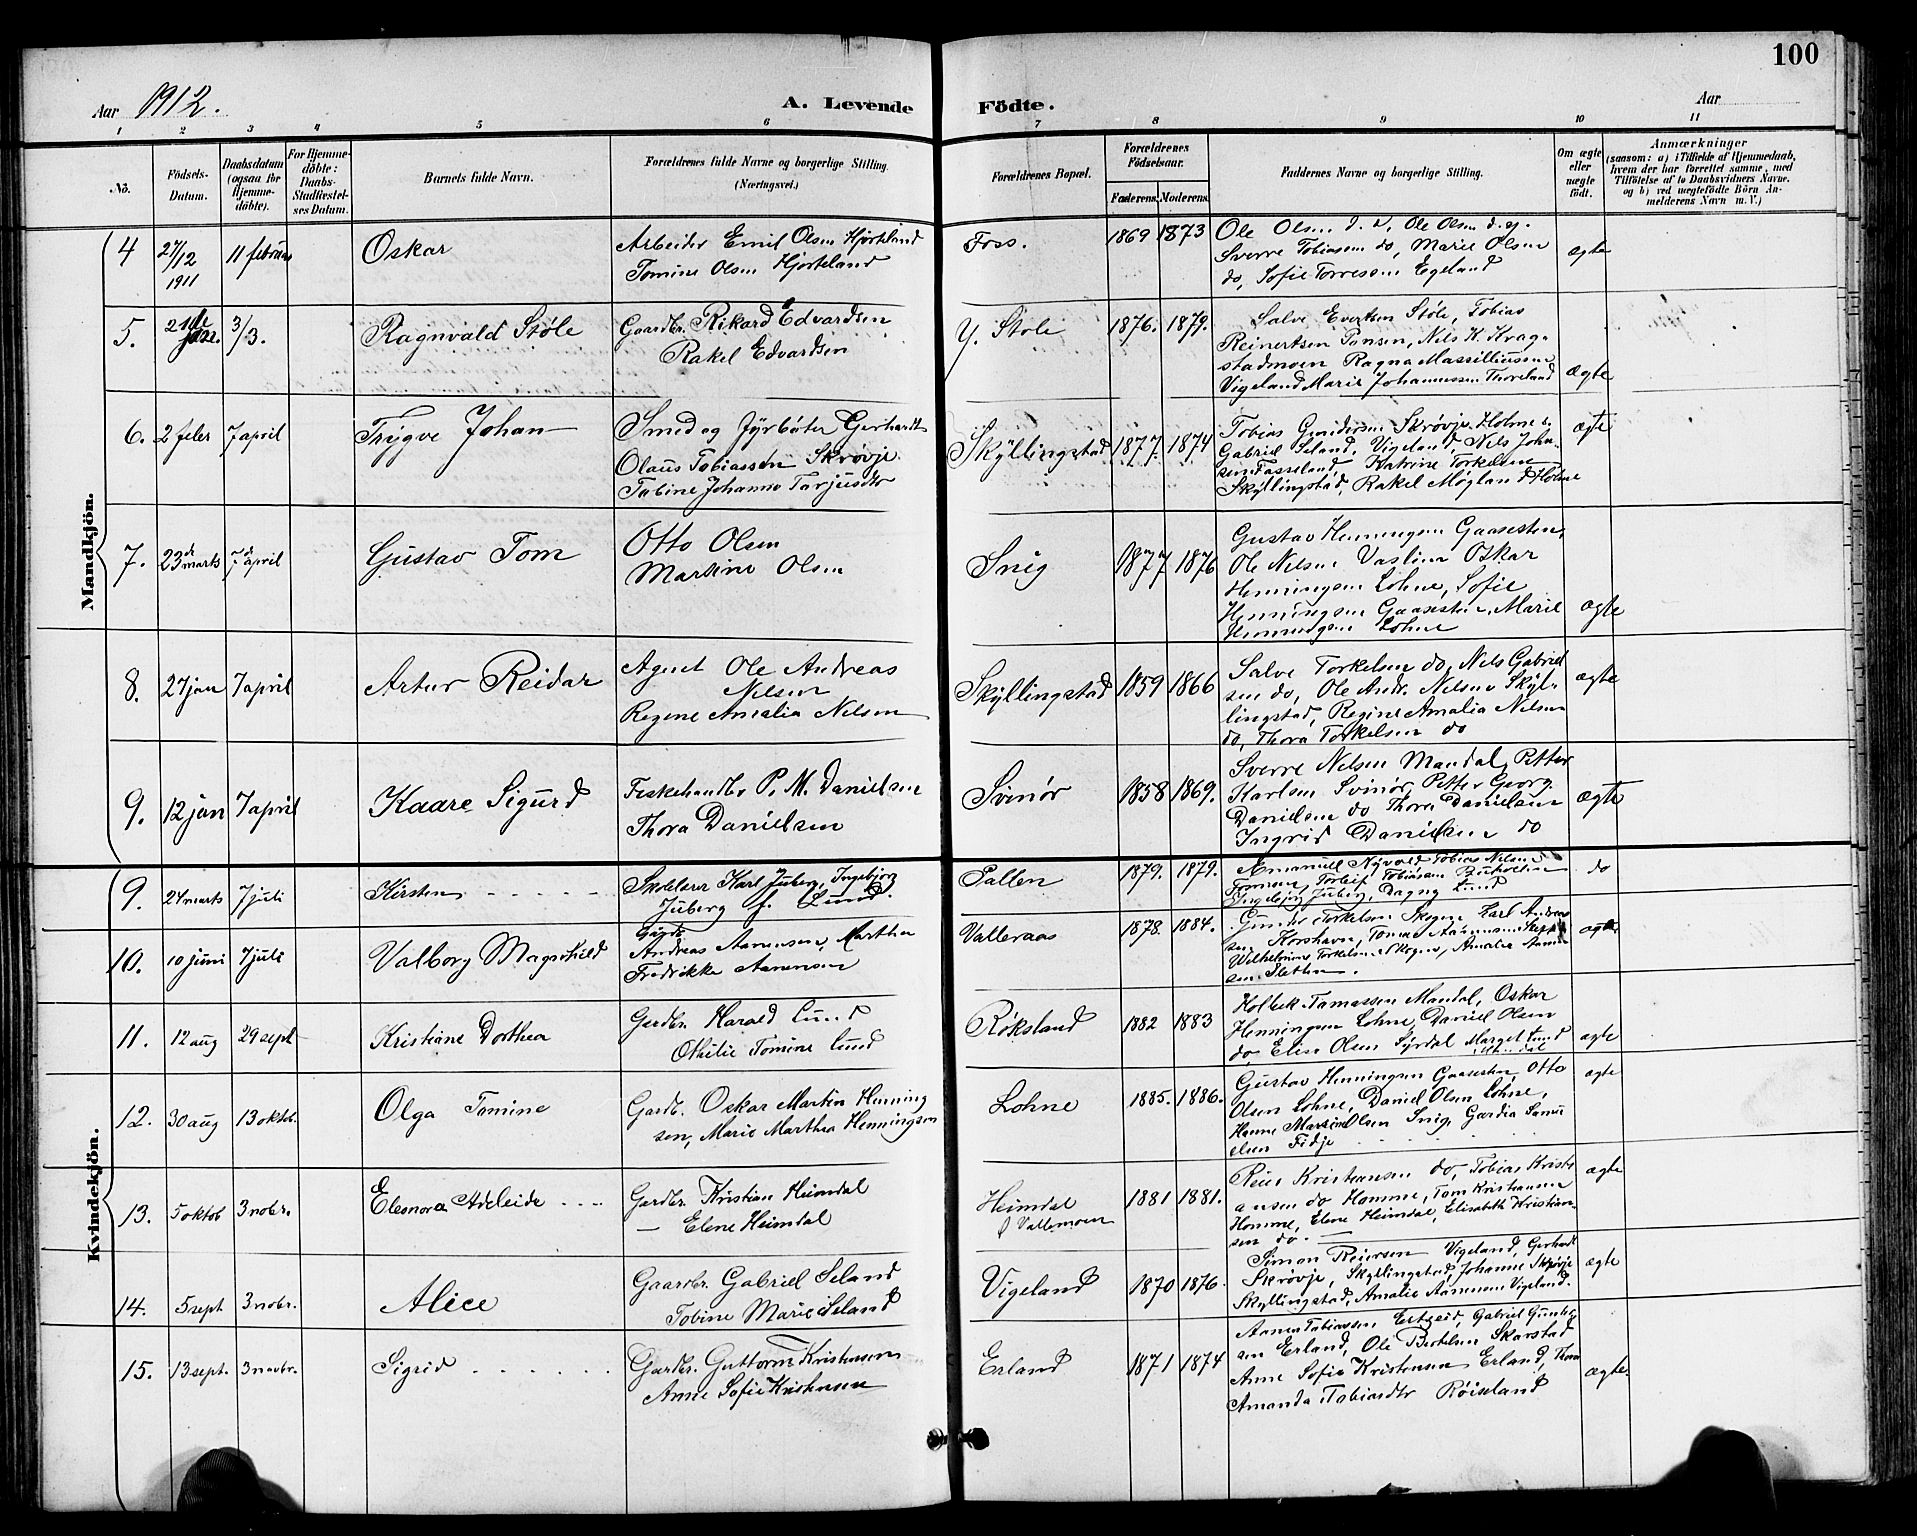 100
Aar 1912.
A. Levende Födte.
Aar
1 2 3 4 5 6 7 8 9 10 11
No.
Födsels-Datum.
Daabsdatum (ogsaa for Hjemmedöbte).
For Hjemmedöbte: Daabs-Stadfæstelses Datum.
Barnets fulde Navn.
Forældrenes fulde Navne og borgerlige Stilling. (Næringsvei.)
Forældrenes Bopæl.
Forældrenes Födselsaar.
Faderens. Moderens.
Faddernes Navne og borgerlige Stilling.
Om ægte eller uægte födt.
Anmærkninger
(saasom: a) i Tilfælde af Hjemmedaab,
hvem der har forrettet samme, med
Tilföielse af to Daabsvidners Navne.
og b) ved uegtefödte Börn An-
melderens Navn m. V.)
Mandkjön.
4 27/12 1911 11 februar Oskar
Arbeider Emil Olsen Hjorteland
Tomine Olsen Hjorteland
Foss. 1869 1873
Ole Olsen Ole Olsen
Sverre Tobiasen do, Marie Olsen
do, Sofie Torresen Egeland
ægte
5. 21de jan. 3/3. Ragnvald Støle
Gaardbr. Rikard Edvardsen
Rakel Edvardsen
Y. Støle 1876. 1879.
Salve Evertsen Støle, Tobias
Reinertsen Nils K. Krag-
stadmoen Ragna Massiliusen
Vigeland Marie Johannessen Thoreland
ægte
6. 2 feber 7 april Trygve Johan
Smed og Fyrbøter Gerhardt
Olaus Tobiassen Skrøvje
Tobine Johanne Tarjusdtr
Skyllingstad 1877 1874
Tobias Gundersen Skrøvje Holme
Gabriel Seland, Vigeland, Nils Johan-
sen Fasseland, Katrine Torkelsen
Skyllingstad, Rakel Møgland Holme
ægte
7. 23de marts 7de april Gustav Tom
Otto Olsen
Martine Olsen
Snig 1877 1876
Gustav Henningsen Gaasesten,
Ole Nilsen Oskar
Henningsen Lohne, Sofie
Henningsen Gaasesten, Marie
Henningsen Lohne
ægte
8. 27 jan 7 april Artur Reidar
Agent Ole Andreas
Nilsen
Regene Amalia Nilsen
Skyllingstad 1859 1866
Salve Torkelsen do, Nils Gabriel
sen do, Ole Andr. Nilsen Skyl-
lingstad, Regine Amalia Nilsen
do, Thora Torkelsen do
ægte
9. 12 jan 7 april Kaare Sigurd
Feskehandler P. M. Danielsen
Thora Danielsen
Svinør 1858 1869.
Sverre Nilsen Mandal, Petter
Karlsen Svinør, Petter Georg
Danielsen do Thora Danielsen
Ingrid Danielsen do
ægte
Kvindekjön.
9. 24 marts 7 juli Kirsten
Skolelærer Karl Juberg, Ingebjorg
Juberg f. Lund.
1879. 1879.
Tobias Nilsen
Tobiasen
Ingebjorg Juberg, Dagny Lund
do
10. 10 juni 7 juli Valborg Magnhild
Gardbr
Andreas Aanensen, Martha
Fredrikke Aanensen
Valleraas 1878. 1884.
Gunder Torkelsen Skogen Karl Andreas
sen Korshavn,
Wilhelmine Torkelsen Skogen, Amalie Aanen
sen Sletten.
ægte
11. 12 aug 29 sept Kristiane Dorthea
Gardbr. Harald Lund
Othilie Tomine Lund
Røksland 1882 1883
Holbek Tamassen Mandal, Oskar
Henningsen Lohne, Daniel Olsen
do Elise Olsen Syrdal Marget Lund
ægte
12. 30 aug 13 oktob. Olga Tomine
Gardbr. Oskar Martin Henning
sen, Marie Marthea Henningsen
Lohne 1885. 1886.
Gustav Henningsen Gaasesten, Otto
Olsen Lohne, Daniel Olsen Lohne,
Hanne Martine Olsen Snig, Gardia Samu
elsen Fidje
ægte
13. 5 oktob 3 nobr. Eleonora Adeleide
Gardbr. Kristian Heimdal
— Elene Heimdal
Heimdal
Vallemoen
1881 1881.
Reier Kristiansen do, Tobias Kristi
ansen do Homme, Tom Kristiansen
Homme, Elene Heimdal, Elisabeth Kristian-
sen do.
ægte
14. 5 sept 3 nobr. Alice
Gaardbr. Gabriel Seland
Tobine Marie Seland
Vigeland 1870 1876.
Simon Reiersen Vigeland, Gerhardt
Skrøvje, Skyllingstad, Johanne Skrøvje
Skyllingstad, Amalie Aanensen Vigeland.
ægte
15. 13 sept. 3 novbr. Sigrid
Gardbr. Guttorm Kristensen
Anne Sofie Kristensen
Erland 1871 1874
Aanen Tobiassen Gabriel Gunder
sen Erland, Ole Bertelsen Skarstad
Anne Sofie Kristensen Erland, Thora
Amanda Tobiasdtr Røiseland
ægte.